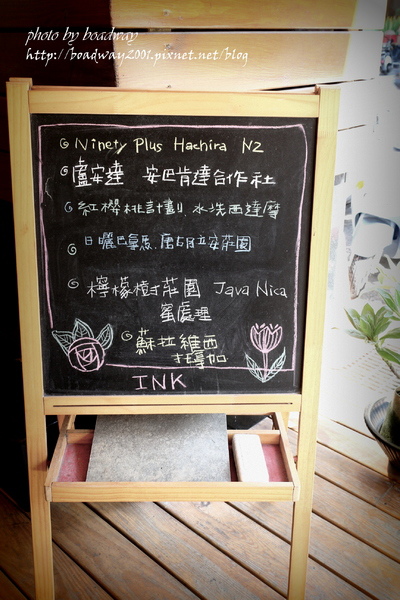 photo by boadway
http://boadway2001.pixnet.net/blog
Ninety Plus Hachira N2
盧安達 安巴肯達合作社
紅櫻桃計劃 水洗西達摩
日曬巴拿馬
莊園
檸檬樹莊園 Java Nica
蜜處理
蘇拉維西
托拿加
INK